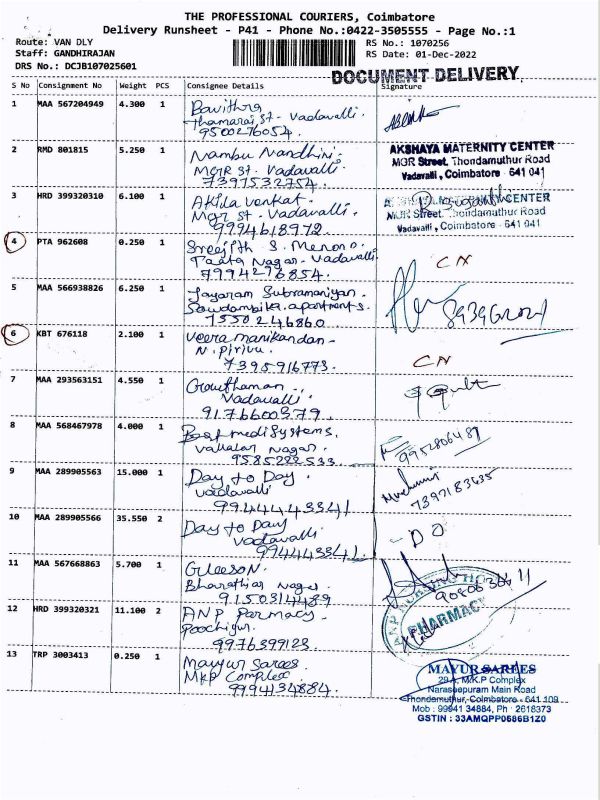 THE PROFESSIONAL COURIERS, Coimbatore
Delivery Runsheet - P41 - Phone No.:0422-3505555 - Page No.:1
Route: VAN DLY
RS No.: 1070256
Staff: GANDHIRAJAN
RS Date: 01-Dec-2022
DRS No.: DCJB107025601
DOCUMENT DELIVERY
S No Consignment No Weight PCS Consignee Details Signature
1 MAA 567204949 4.300 1 Pavithra
Thamarai St - Vadavalli.
9500276054.
2 RMD 801815 5.250 1 Nambu Nandhini
MGR St. Vadavalli
7397532754.
AKSHAYA MATERNITY CENTER
MGR Street, Thondamuthur Road
Vadavalli, Coimbatore - 641 041
3 HRD 399320310 6.100 1 Akila Venkat.
Mgr St - Vadavalli.
9994618972.
CENTER
MGR Street, Thondamuthur Road
Vadavalli, Coimbatore - 641 041
4 PTA 962608 0.250 1 Sreejith S. Menon.
Taata Nagar - Vadavalli
7994276854.
CN
5 MAA 566938826 6.250 1 Jayaram Subramaniyan.
Sowdambika apartments.
7550246860
6 KBT 676118 2.100 1 Veera manikandan -
N. Pirivu.
7395916773.
CN
7 MAA 293563151 4.550 1 Gowthaman
Vadavalli
9176600379.
8 MAA 568467978 4.000 1 Best medisystems.
Vakalar Nagar.
9585222533
9952806487
9 MAA 289905563 15.000 1 Day to Day.
Vadavalli
9944443341
7397183635
10 MAA 289905566 35.550 2 Day to Day
Vadavalli
9944443341
- D D
11 MAA 567668863 5.700 1 Gleeson.
Bharathiar Nagar.
9150314489
12 HRD 399320321 11.100 2 ANP Parmacy.
Poochiyur.
9976399123.
PHARMACY
13 TRP 3003413 0.250 1 Mayyur Sarees
MKP Complex
9994134884.
MAYUR SAREES
29 A, M.K.P Complex
Naraseepuram Main Road
Thondamuthur, Coimbatore - 641 109
Mob : 99941 34884, Ph : 2618373
GSTIN : 33AMQPP0686B1Z0